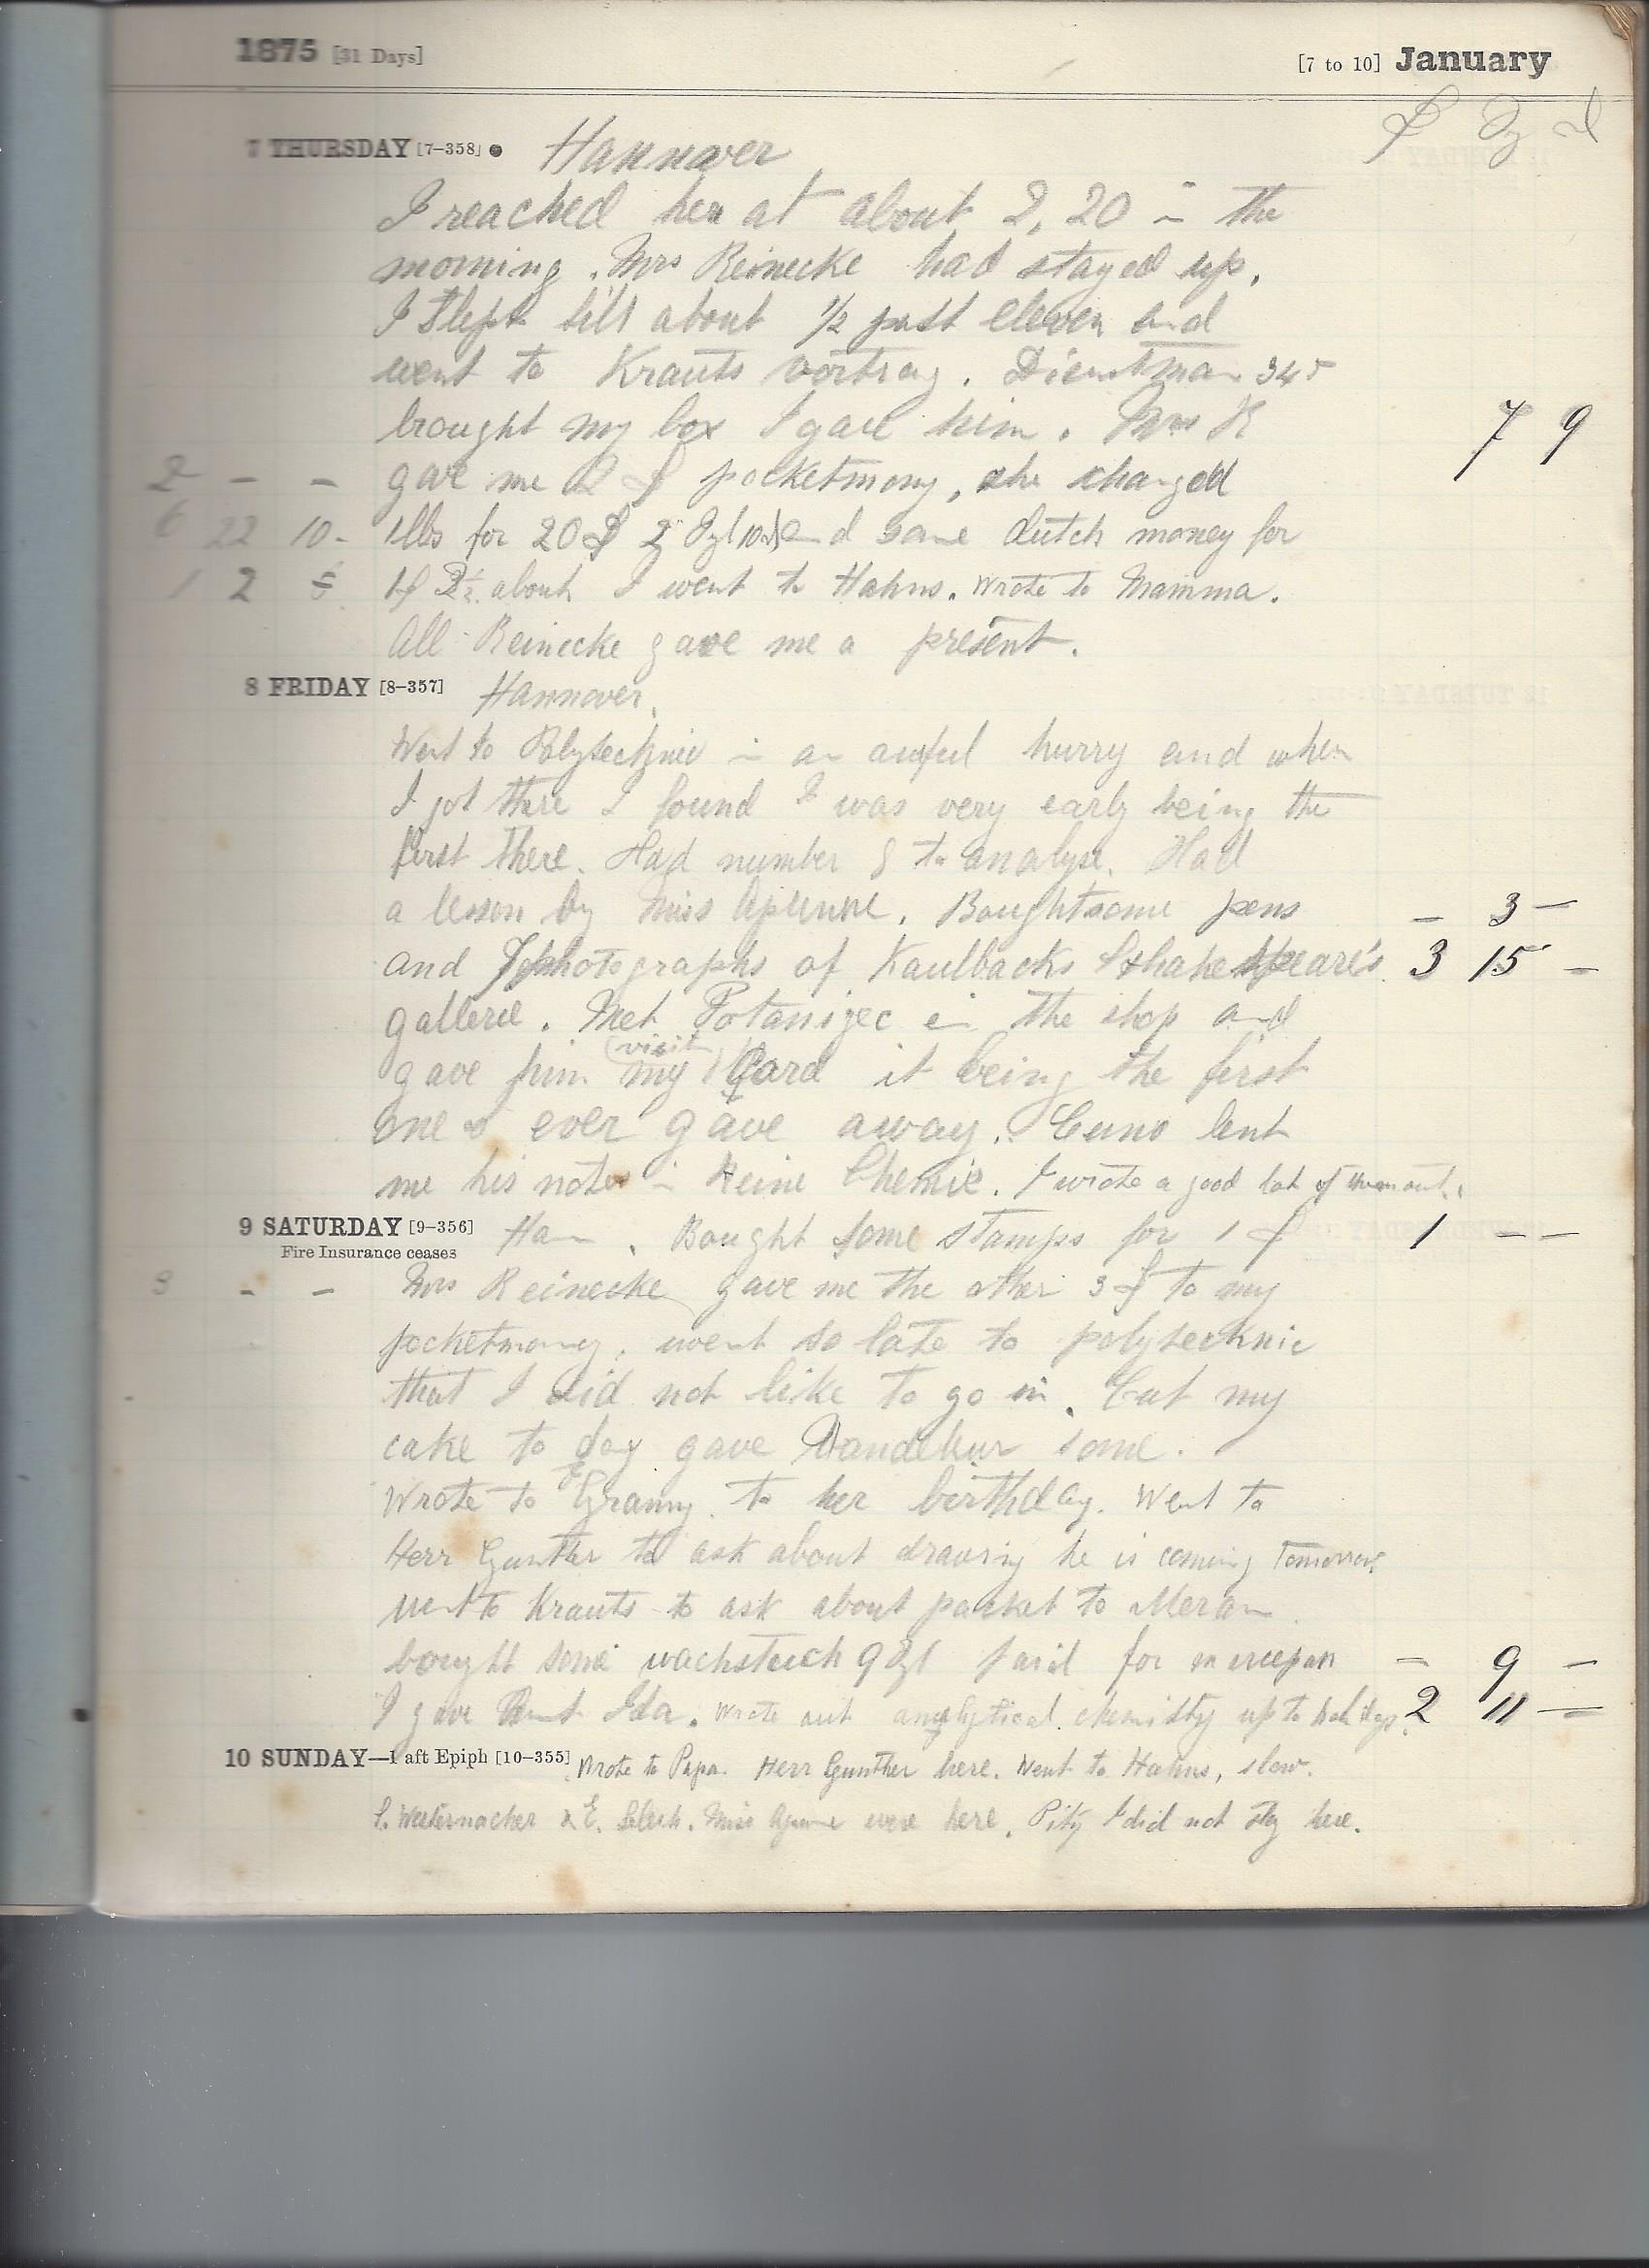 1875 [31 Days] [7 to 10] January
7 THURSDAY [7-358] ● Hannover
I reached her at about 2, 20 in the
morning. Mrs Reinecke had stayed up.
I slept till about 1/2 past eleven and
went to Krauts vortrag. Dienstman 345
brought my box I gave him. Mrs R 7 9
2 - - gave me 2 pocketmony, she changed
6 22 10- for 20 2 and some dutch money for
1 2 5 about I went to Hahns. Wrote to Mamma.
All Reinecke gave me a present.
8 FRIDAY [8-357] Hannover.
Went to Polytecknic in an awful hurry and when
I got there I found I was very early being the
first there. Had number 8 to analyse. Had
a lesson by Miss Bought some pens - 3 -
and photographs of Kaulbacks Shakespeare's 3 15 -
gallerie. Met in the shop and
(visit)
gave him my Card it being the first
one I ever gave away. Cuno lent
me his notes in Reine Chemie. I wrote a good lot of them out.
9 SATURDAY [9-356] Han. Bought some stamps for 1 1 - -
Fire Insurance ceases
3 - - Mrs Reinecke gave me the other 3 to my
pocketmoney. went so late to polytecknic
that I did not like to go in. Cut my
cake to day gave some.
Wrote to Granny to her birthday. Went to
Herr Gunther to ask about drawing he is coming tomorrow.
went to Krauts to ask about packet to Meran
bought some wachstuch 9 paid for marcepan - 9 -
I gave Aunt Ida. Wrote out analytical chemistry up to holidays. 2 11 -
10 SUNDAY—1 aft Epiph [10-355] Wrote to Papa. Herr Gunther here. Went to Hahns, slow.
& E. Miss were here. Pity I did not stay here.